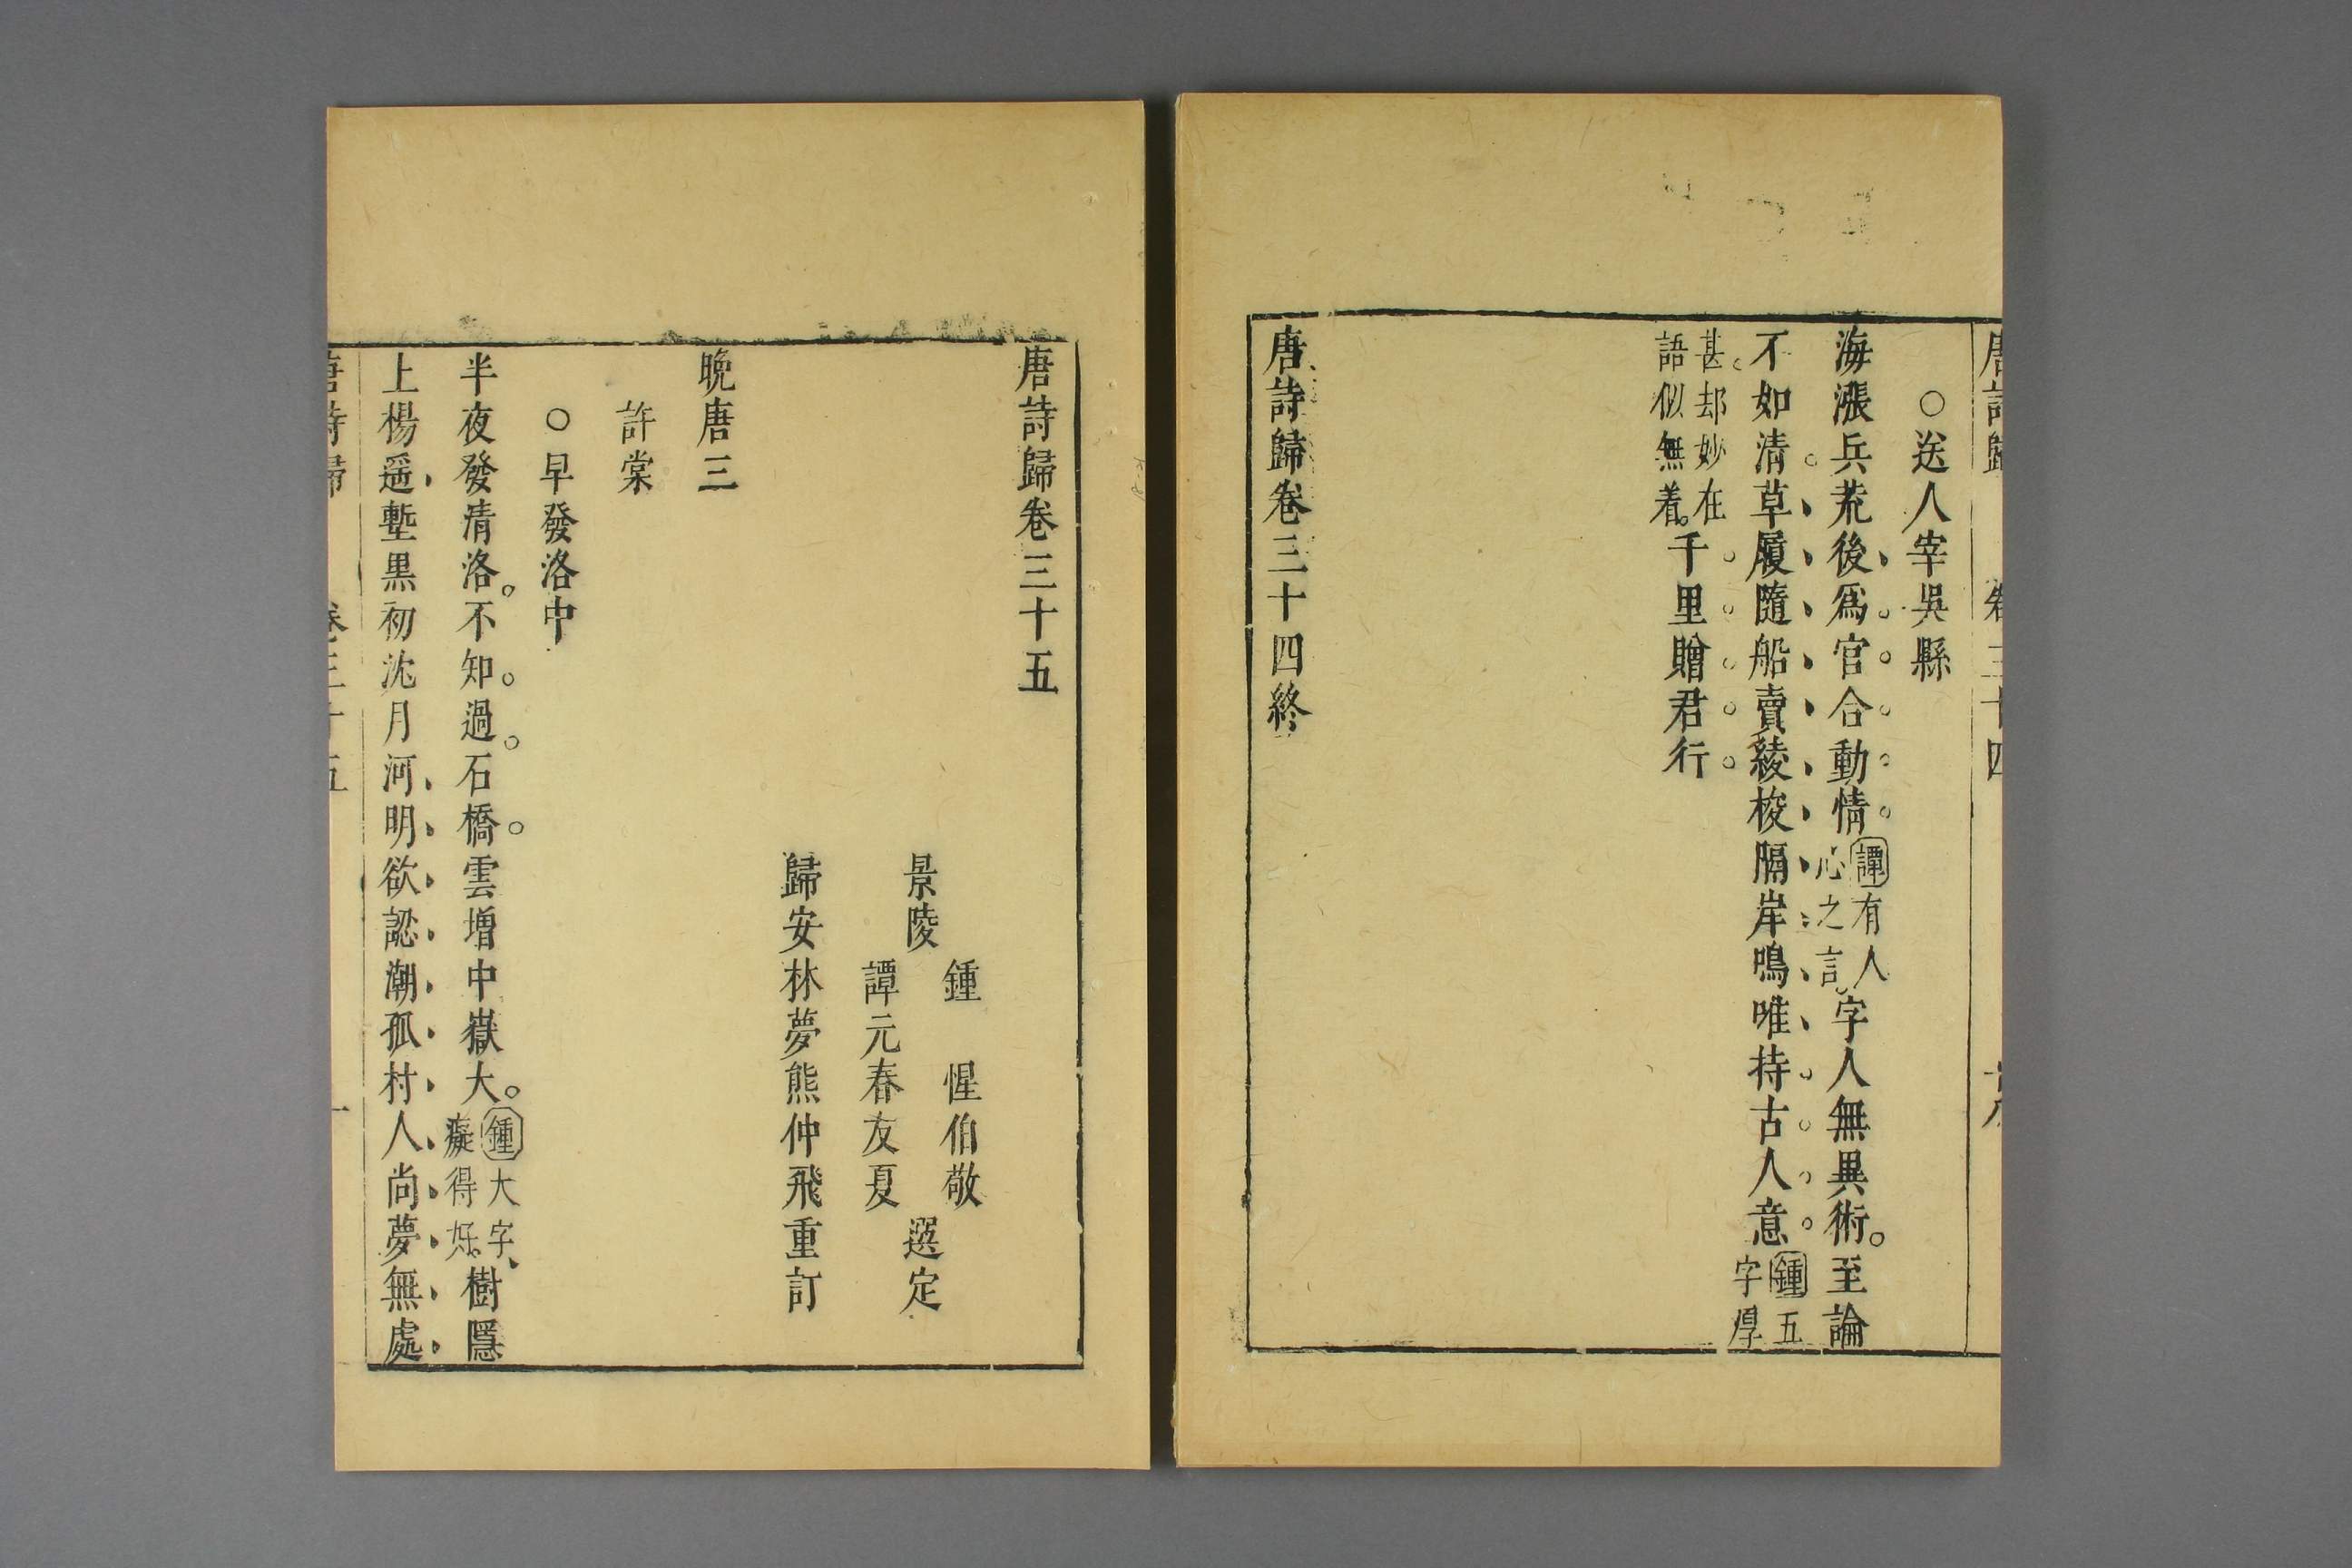 唐詩歸 卷三十四
○送人宰吳縣
海漲兵荒後爲官合動情譚有人心之言字人無異術至論
不如清草履隨船賣綾梭隔岸鳴唯待古人意鍾五字厚
甚却妙在語似無着千里贈君行
唐詩歸卷三十四終
唐詩歸卷三十五
鍾 惺伯敬
景陵 選定
譚元春友夏
歸安林夢熊仲飛重訂
晚唐三
許棠
○早發洛中
半夜發清洛不知過石橋雲增中嶽大鍾大字癡得好樹隱
上楊遥塹黒初沈月河明欲認潮孤村人尚夢無處
唐詩歸 卷三十五 一